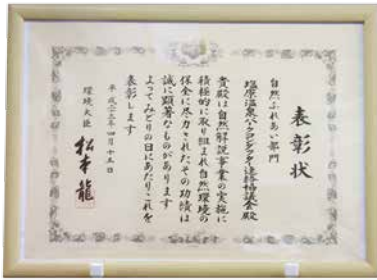 表彰状
自然ふれあい部門
塩原温泉ビジターセンター運営協議会殿
貴殿は自然解説事業の実施に
積極的に取り組まれ自然環境の
保全に尽力されたその功績は
誠に顕著なものがあります
よってみどりの日にあたりこれを
表彰します
平成二十三年四月十五日
環境大臣 松本龍